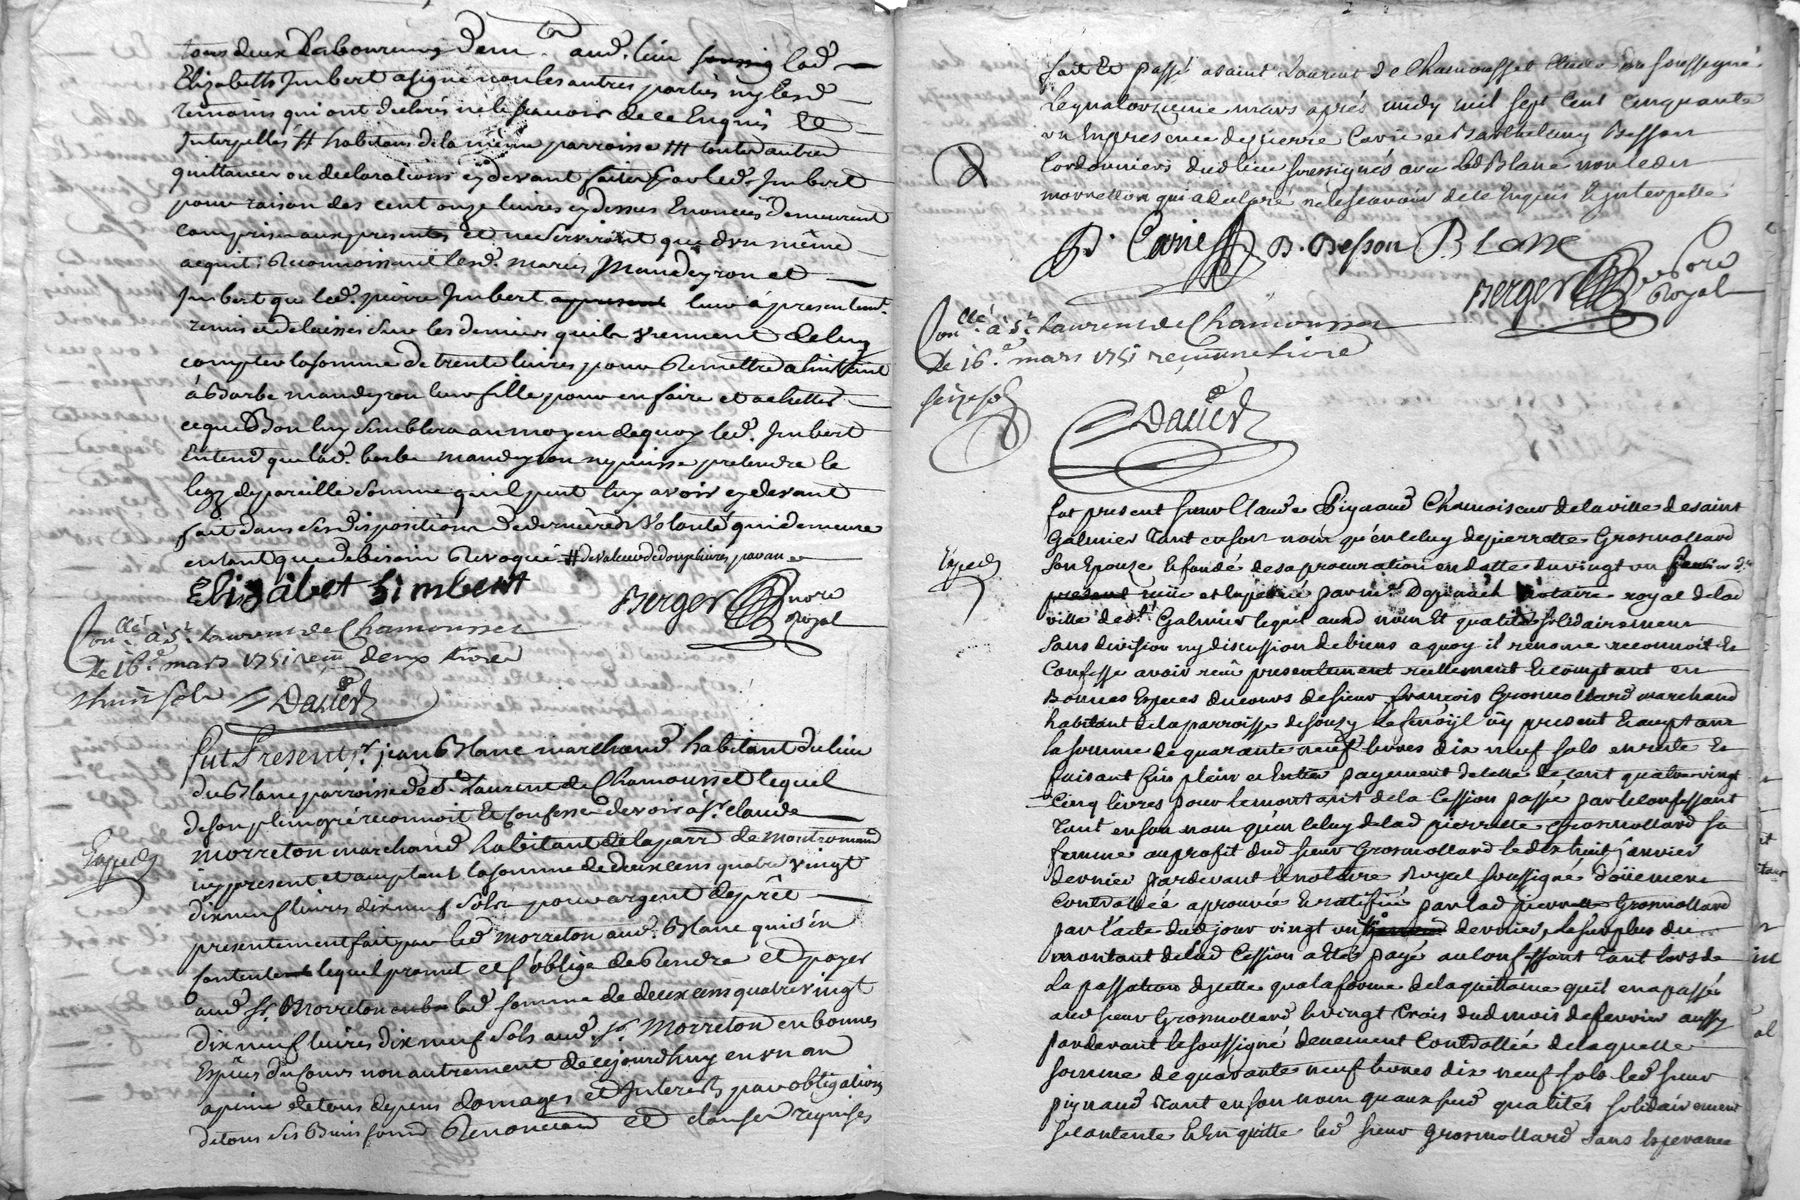 tous deux Laboureurs dem.rts aud. lieu lad.
Elizabeth Imbert a signé non les autres parties ny lesd.
temoins qui ont declaré ne le scavoir de ce Enquis et
Interpellés # habitans de la même parroisse ### toutes autres
quittances ou declarations cy devant faites par led. Imbert
pour raison des cent onze livres cy dessus Enoncées demeurent
comprises aux presentes et ne serviront que d'un même
acquit; Reconnoissant lesd. mariés Mandeyron et
Imbert que led. pierre Imbert leur a presentem.t
remis et delaissé sur les deniers qu'ils viennent de luy
compter la somme de trente livres pour Remettre a l'instant
à Barbe mandeyron leur fille pour en faire et achetter
ce que Bon luy semblera au moyen de quoy led. Imbert
Entend que lad. barbe mandeyron ny puisse pretendre le
legz de pareille somme qu'il peut luy avoir cy devant
fait dans ses dispositions de derniere Volonté qui demeure
entant que de besoin Revoqué # de valeur de douze livres par an
Elizabet himbert
Berger no.re Royal
Con.llé à S.t Laurent de Chamousset
le 16.e mars 1751 reçu deux livres
huit sols Dauer
Fut Present s.r jean Blanc marchand habitant du lieu
du Blanc parroisse de S.t Laurent de Chamousset lequel
de son plein gré reconnoit et Confesse devoir à s.r claude
Morreton marchand habitant de la parr.e de montromand
icy present et acceptant la somme de deux cens quatre vingt
Exped.
dix neuf livres dix neuf sols pour argent de prêt
presentement fait par led. Morreton aud. Blanc qui s'en
contente lequel promet et s'oblige de Rendre et payer
aud. s.r Morreton lad. somme de deux cens quatre vingt
dix neuf livres dix neuf sols aud. s.r Morreton en bonnes
Espèces du Cours non autrement de cejourdhuy en un an
a peine de tous depens domages et Interests par obligation
de tous ses Biens soumis Renonciaon et clauses requises
fait et passé a saint Laurent de Chamousset Etude du soussigné
le quatorzieme mars après midy mil sept Cent Cinquante
un En presence de pierre Carrie et Barthelemy Besson
Cordonniers dud. lieu soussignés avec led. Blanc non led.
morretton qui a declaré ne le scavoir de ce Enquis et interpellé
P. Carrie B. Besson B Lanc
Berger no.re Royal
Con.llé à S.t Laurent de Chamousset
le 16.e mars 1751 reçu une livre
seize sols
Dauer
fut present sieur Claude Pignaud Chamoiseur de la ville de saint
Galmier tant en son nom qu'en celuy de pierrette Grosmollard
Exped.
son Epouse et fondé de sa procuration en datte du vingt un
reçue et expedié par m.e notaire royal de lad.
ville de S.t Galmier lequel aud. nom et qualités solidairement
sans division ny discussion de biens a quoy il renonce reconnoit et
Confesse avoir reçu presentement reellement et comptant en
Bonnes Especes du cours de sieur françois Grosmollard marchand
habitant de la parroisse de icy present et acceptant
la somme de quarante neuf livres dix neuf sols en reste et
faisant fin plein et Entier payement de celle de Cent quatre vingt
Cinq livres pour le montant de la Cession passé par le confessant
tant en son nom qu'en celuy de lad. pierrette Grosmollard sa
femme au profit dud. sieur Grosmollard le dix huit janvier
dernier pardevant le notaire Royal soussigné düement
Controllée aprouvée et ratifiée par lad. pierrette Grosmollard
par l'acte dud. jour vingt un dernier, le surplus du
montant de lad. Cession a été payé au confessant tant lors de
la passation d'icelle qu'a la forme de la quittance qu'il en a passée
aud. sieur Grosmollard le vingt trois dud. mois de fevrier aussy
pardevant le soussigné deuement Controllée de laquelle
somme de quarante neuf livres dix neuf sols led. sieur
pignaud tant en son nom qu'auxsusd. qualités solidairement
se contente et En quitte led. sieur Grosmollard sans Esperance